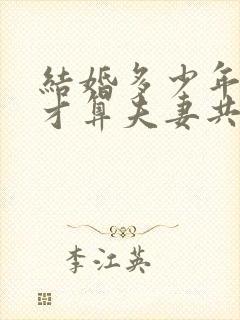 結婚多少年
才算夫妻共
李江英